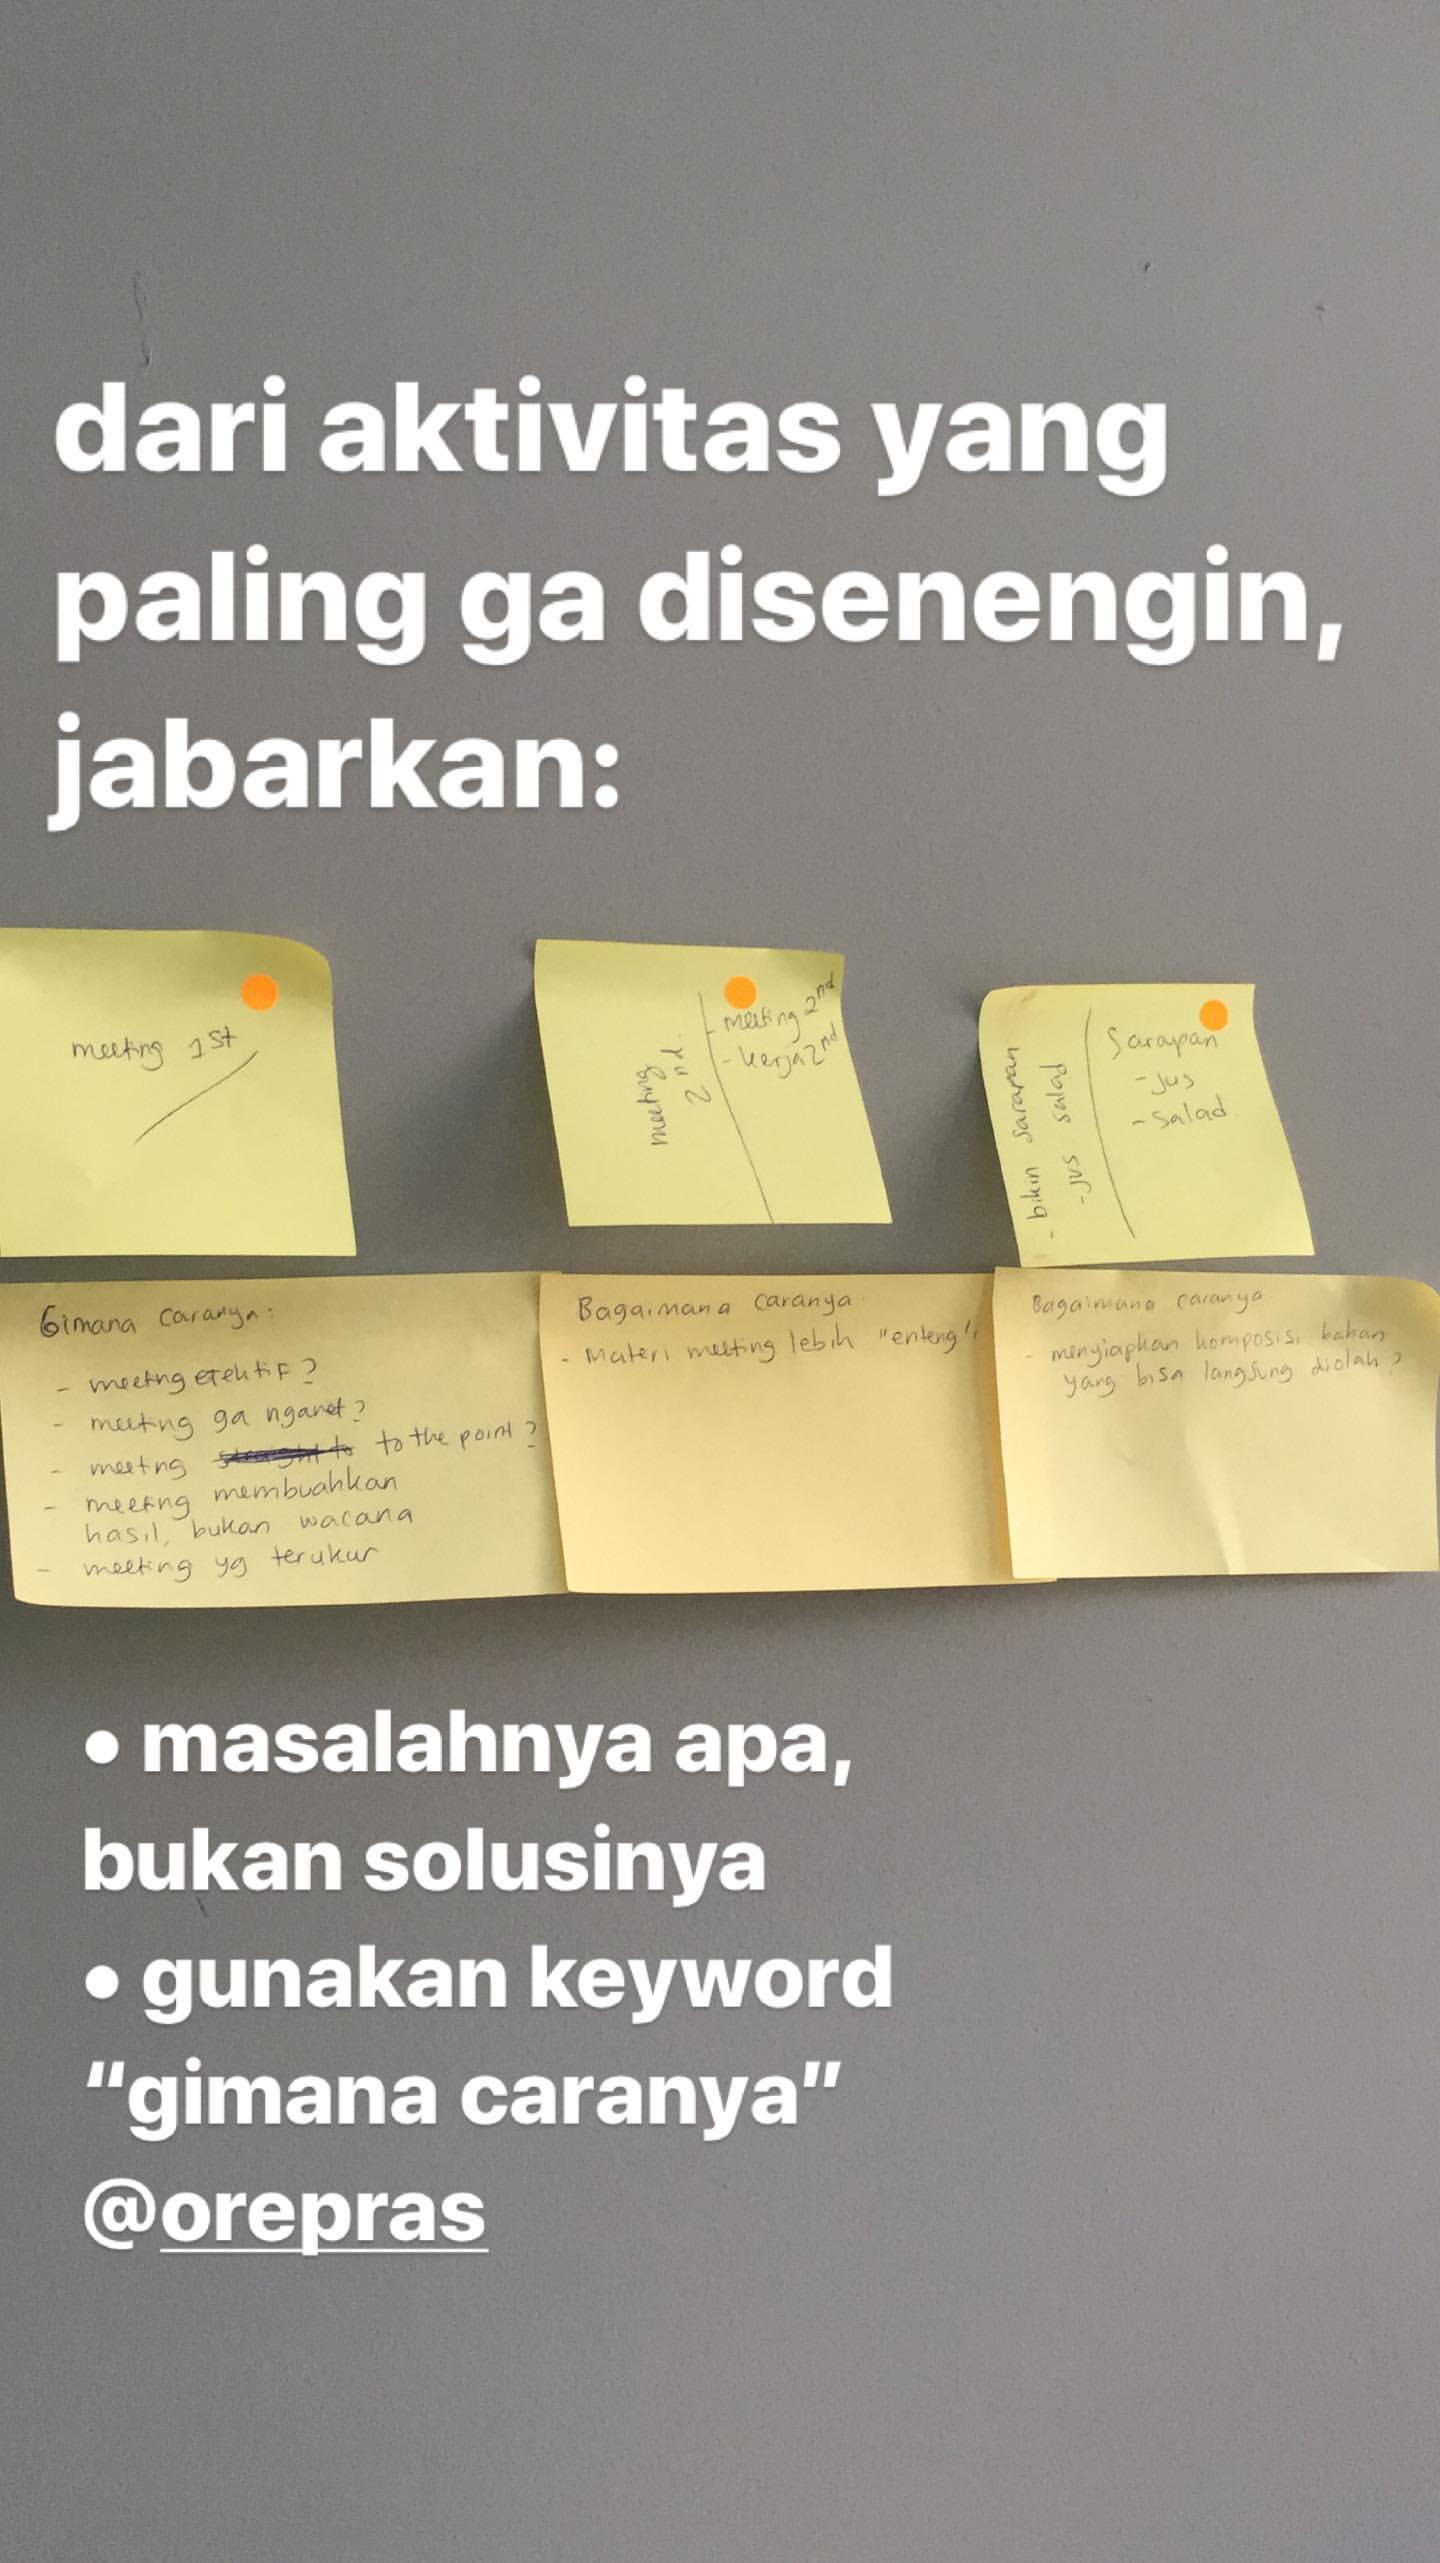 dari aktivitas yang
paling ga disenengin,
jabarkan:
meeting 1st
meeting
2nd.
- meeting 2nd
- kerja 2nd
- bikin sarapan
- jus salad
Sarapan
- jus
- salad.
Gimana caranya:
- meeting efektif?
- meeting ga nganet?
- meeting straight to to the point?
- meeting membuahkan
hasil, bukan wacana
- meeting yg terukur
Bagaimana caranya
- Materi meeting lebih "enteng"
Bagaimana caranya
- menyiapkan komposisi bahan
yang bisa langsung diolah?
• masalahnya apa,
bukan solusinya
• gunakan keyword
“gimana caranya”
@orepras